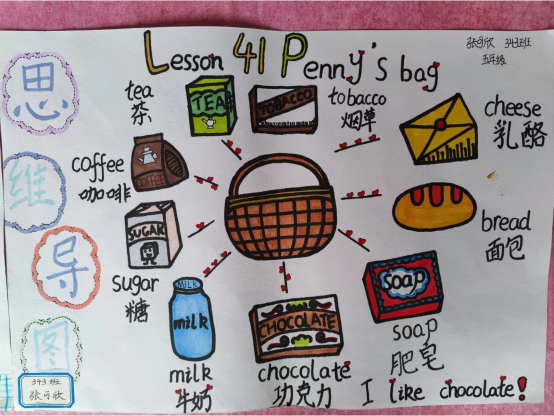 Lesson 41 Penny's bag
343班
五年级
思
维
导
图
tea
茶
TEA
TOBACCO
tobacco
烟草
cheese
乳酪
coffee
咖啡
bread
面包
SUGAR
sugar
糖
MILK
milk
milk
牛奶
CHOCOLATE
chocolate
功克力
soap
soap
肥皂
343班
I like chocolate!